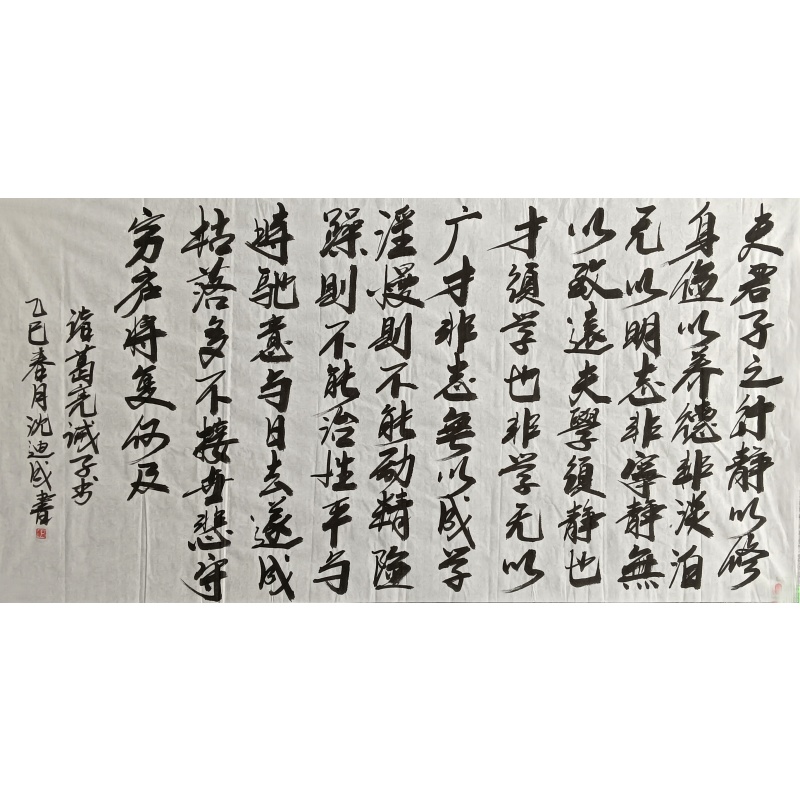 夫君子之行静以修
身俭以养德非淡泊
无以明志非寧静無
以致遠夫學須静也
才須学也非学无以
广才非志無以成学
淫慢则不能励精险
躁则不能治性平与
時驰意与日去遂成
枯落多不接世悲守
穷庐将复何及
诸葛亮诫子书
乙巳春月沈迪成書